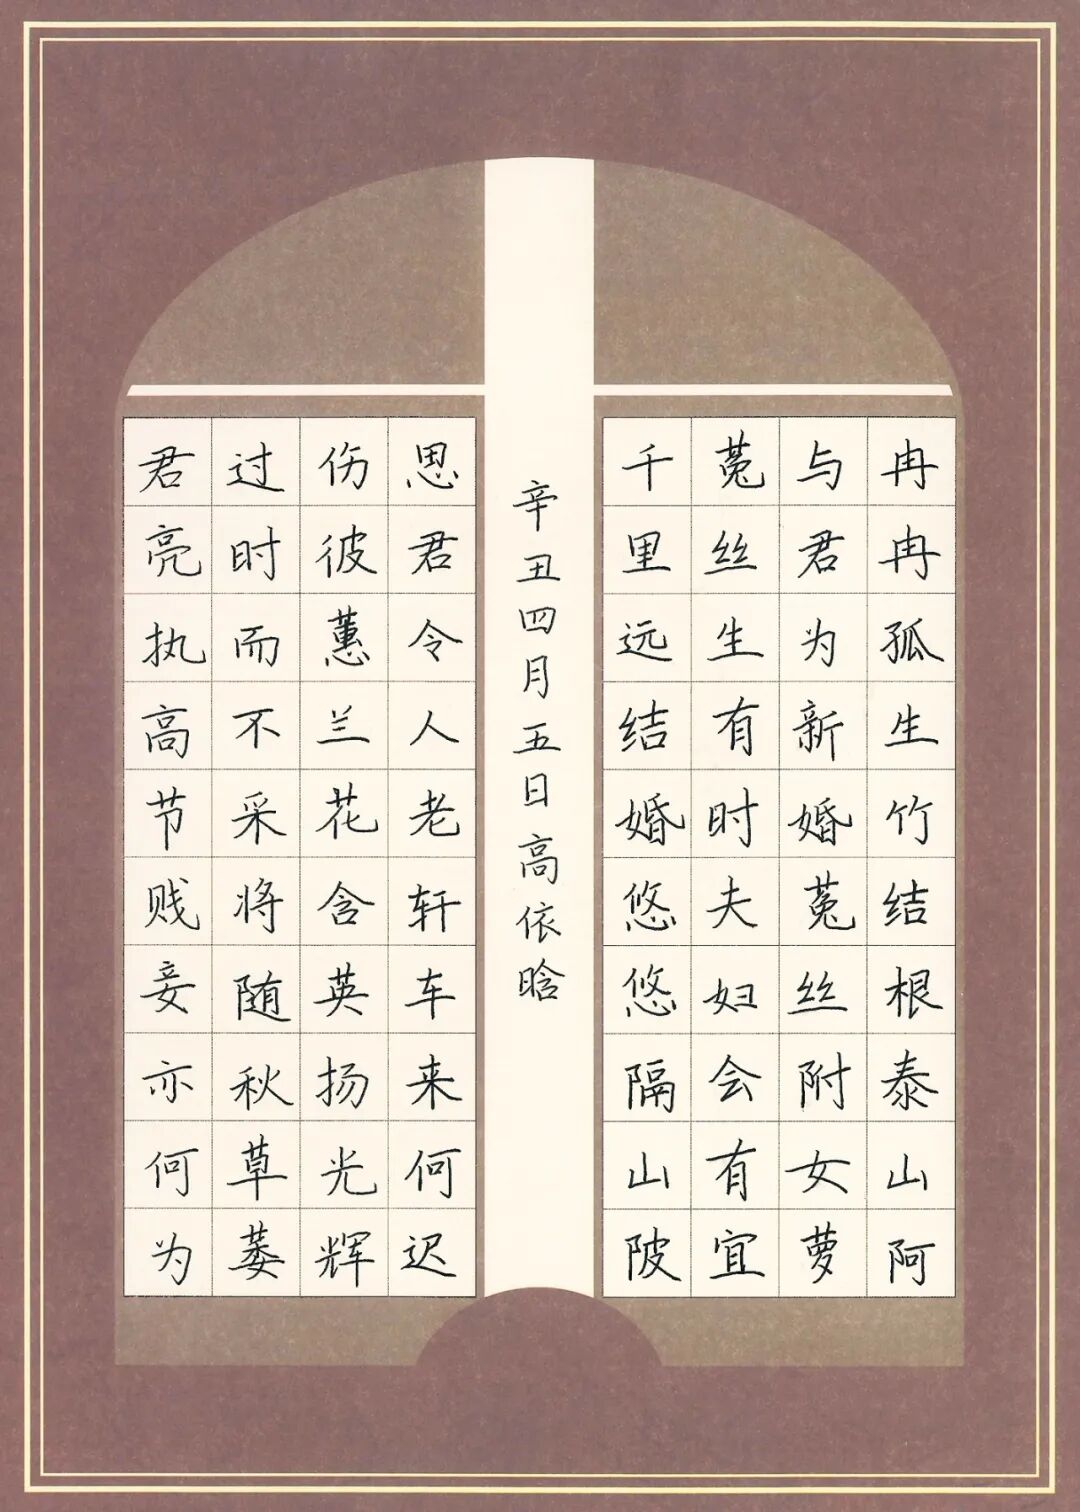 冉冉孤生竹结根泰山阿
与君为新婚菟丝附女萝
菟丝生有时夫妇会有宜
千里远结婚悠悠隔山陂
思君令人老轩车来何迟
伤彼蕙兰花含英扬光辉
过时而不采将随秋草萎
君亮执高节贱妾亦何为
辛丑四月五日高依晗